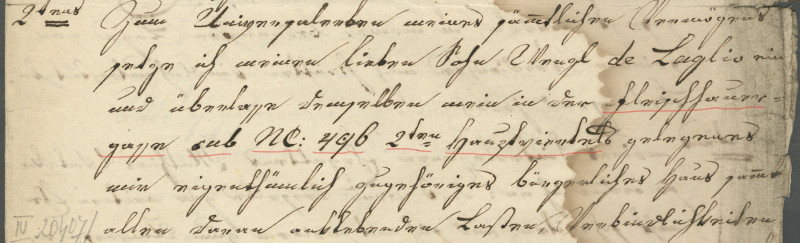 2tens Zum Universalerben meines sämmtlichen Vermögens
setze ich meinen lieben Sohn Wenzl de Laglio ein
und überlasse demselben mein in der Fleischhauer-
gasse sub NC: 496 2ten Hauptviertels gelegenes
mir eigenthümlich zugehöriges bürgerliches Haus sammt
allen daran anklebenden Lasten, Verbindlichkeiten
IV 20407/